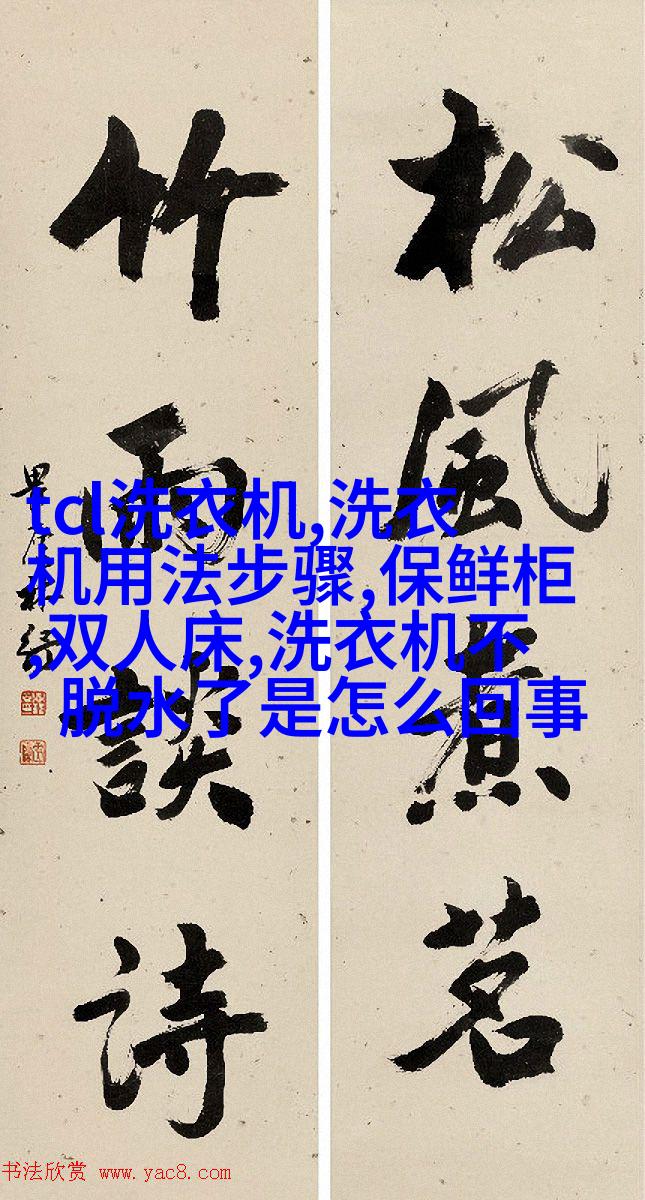 松風煮茗
竹雨談詩
tcl洗衣机,洗衣
机用法步骤,保鲜柜
,双人床,洗衣机不
脱水了是怎么回事
书法欣赏 www.yac8.com